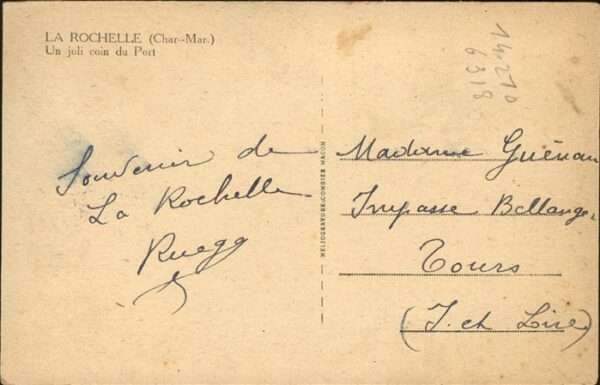 LA ROCHELLE (Char.-Mar.)
Un joli coin du Port
14270
6318
Souvenir de
La Rochelle
Ruegg
HÉLIOGRAVURE-COMBIER MACON
Madame Guénau
Impasse Bellanger
Tours
(I. et Loire)